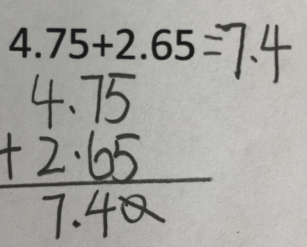 4.75+2.65=7.4
4.75
+2.65
7.40